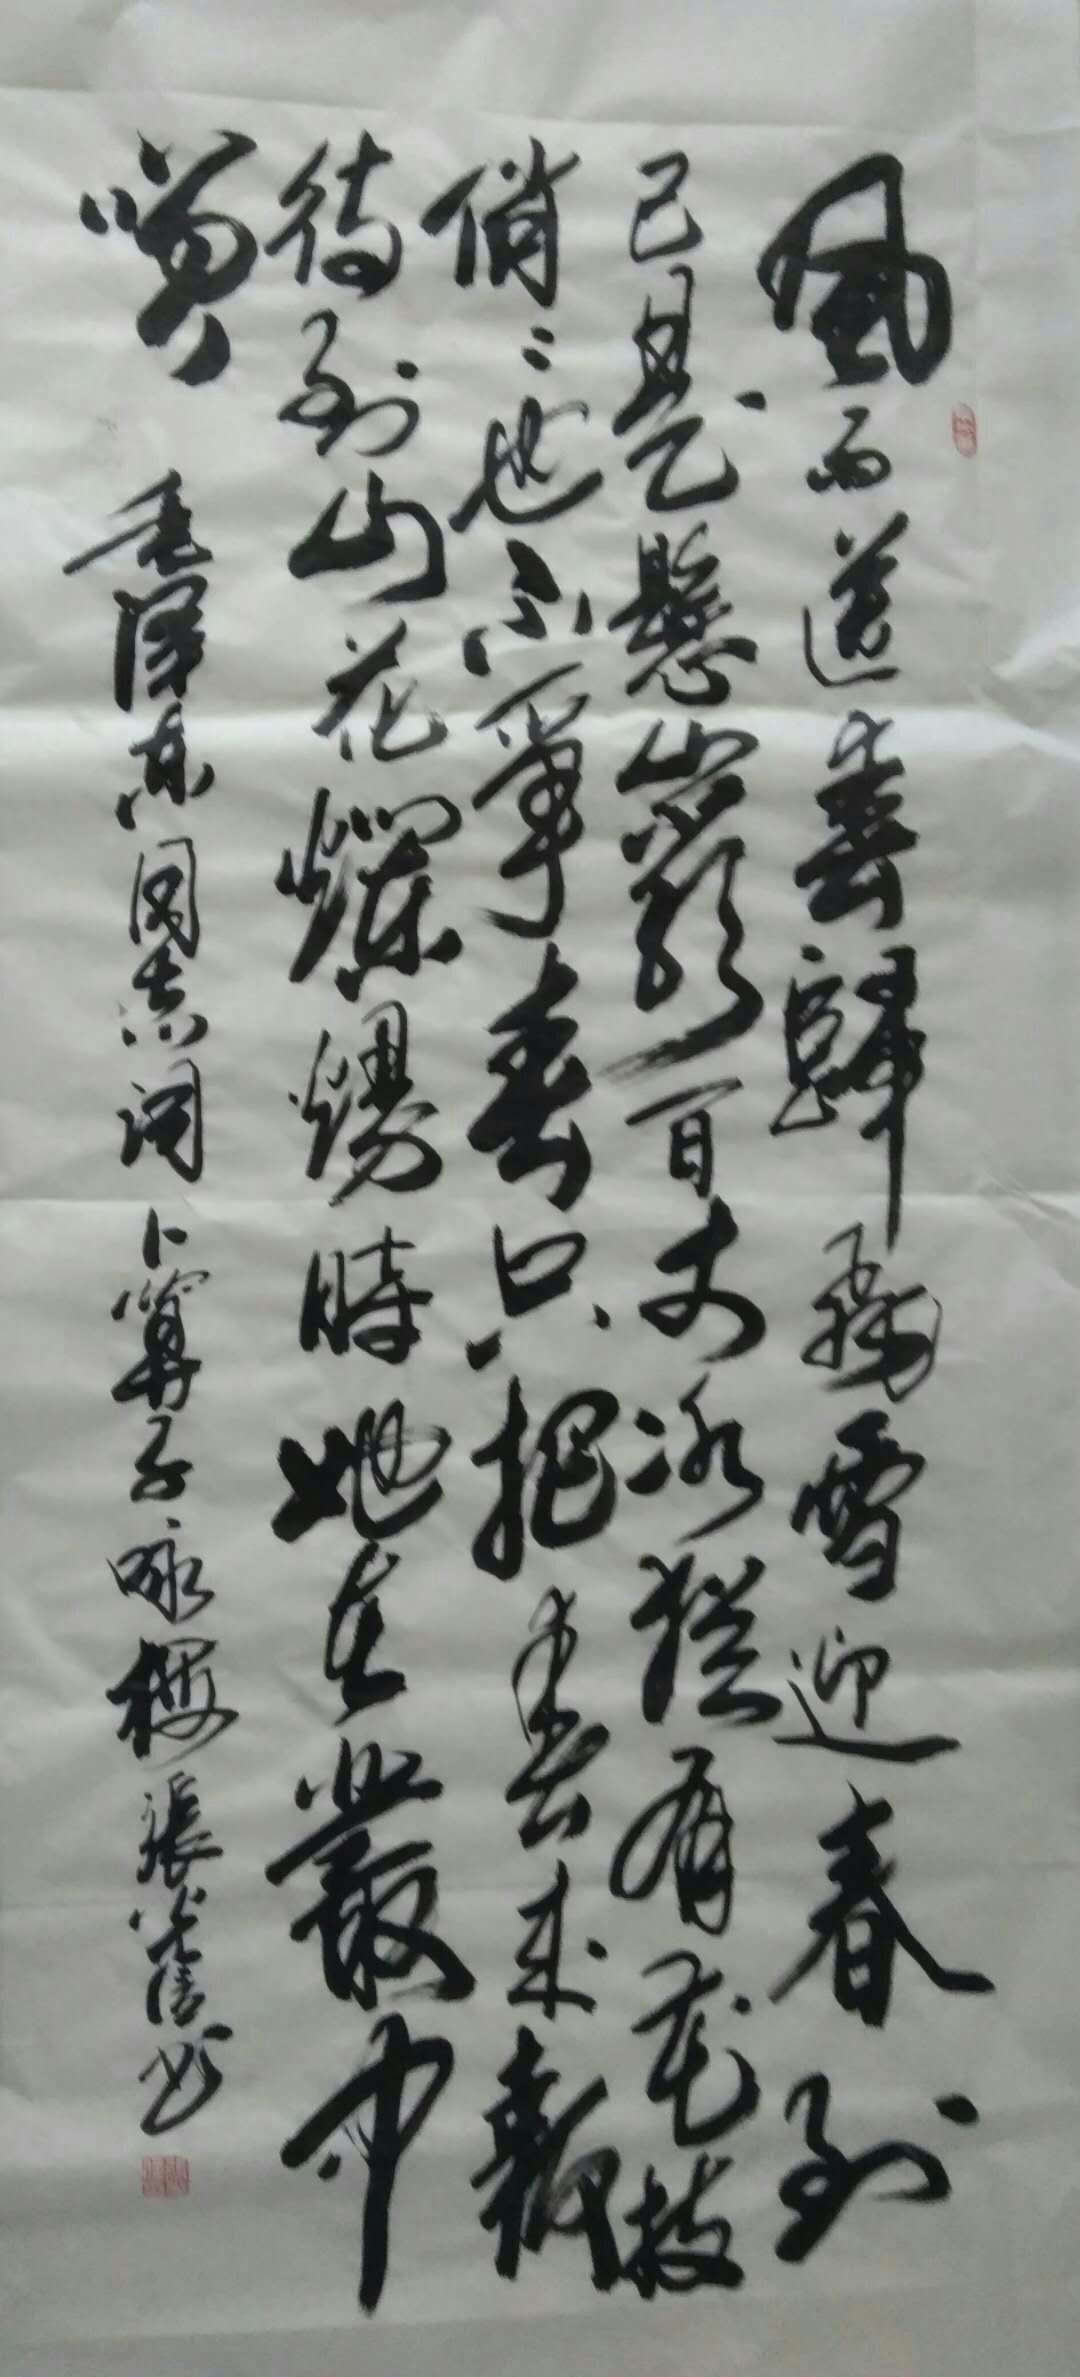 風雨送春歸飛雪迎春到
已是懸崖百丈冰猶有花枝
俏俏也不爭春只把春來報
待到山花爛熳時她在叢中
笑
毛澤東同志詞卜算子咏梅張書